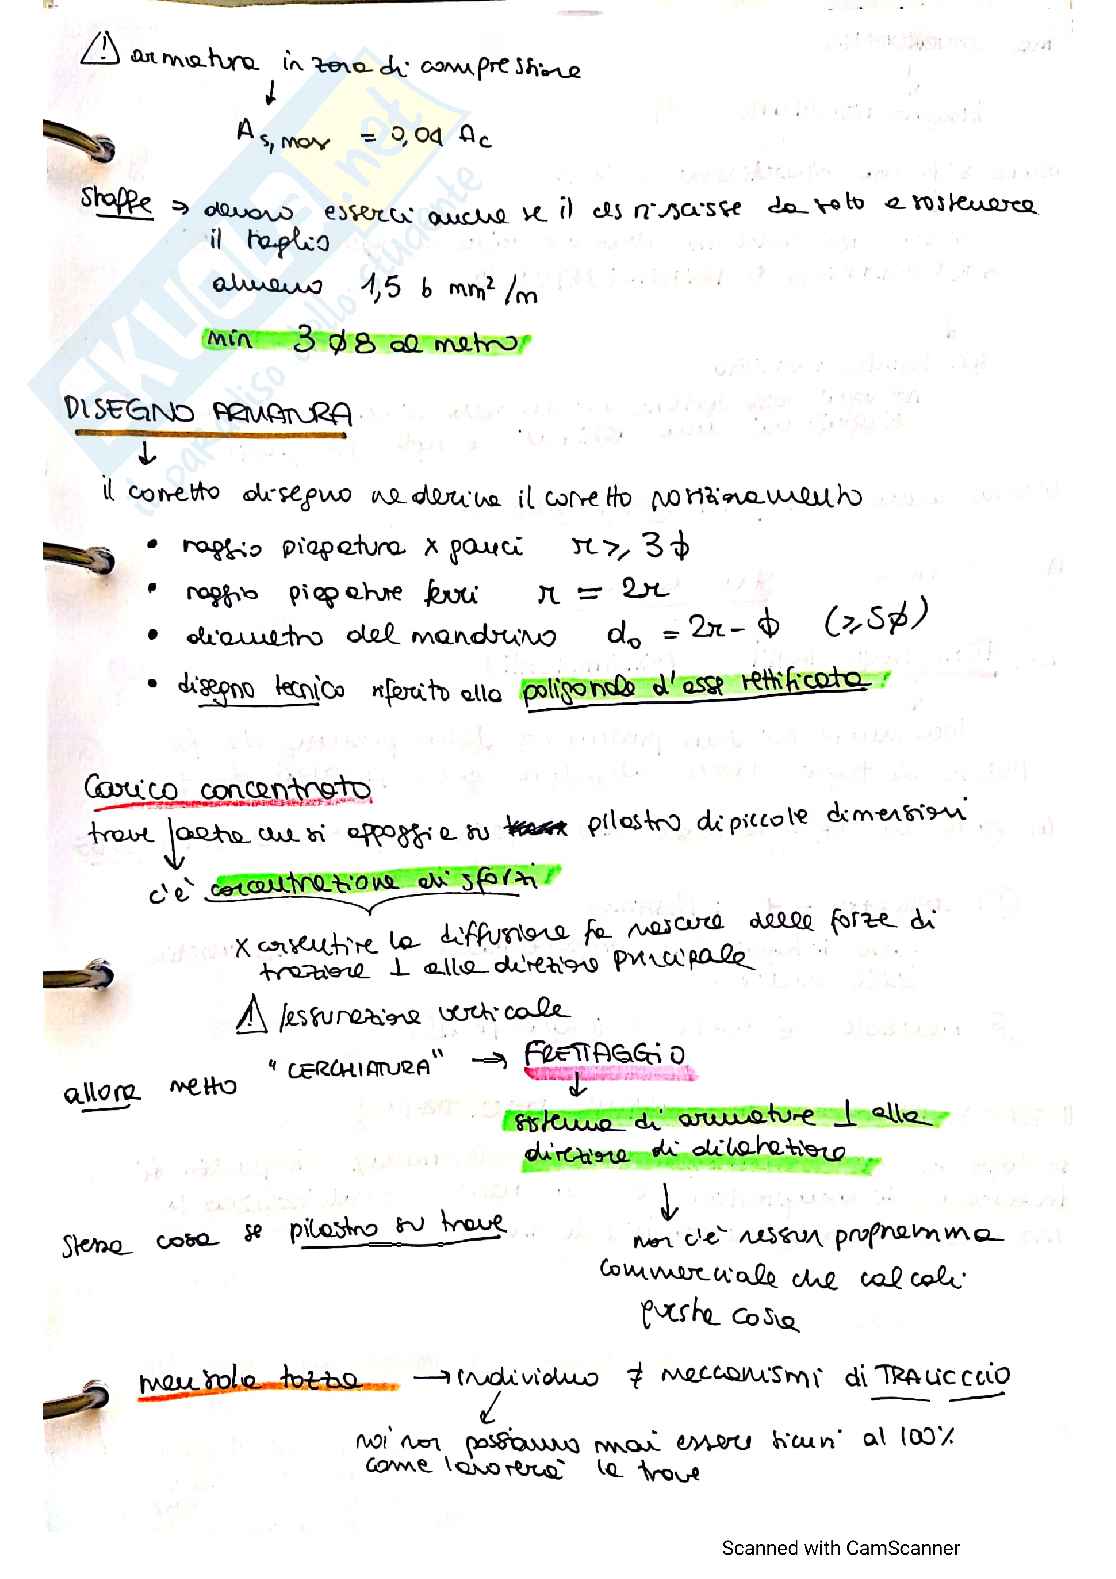 ⚠ armatura in zona di compressione
↓
As,max = 0,04 Ac
Staffe ⇒ devono esserci anche se il cls riuscisse da solo a sostenere
il taglio
almeno 1,5 b mm²/m
min 3 ϕ8 al metro
DISEGNO ARMATURA
↓
il corretto disegno ne deriva il corretto
• raggio piegatura x ganci r ≥ 3ϕ
• raggio piegature ferri r = 2r
• diametro del mandrino d₀ = 2r - ϕ (≥5ϕ)
• disegno tecnico riferito alla poligonale d'asse rettificata
Carico concentrato
trave che si appoggia su pilastro di piccole dimensioni
↓
c'è concentrazione di sforzi
x consentire la diffusione fa nascere delle forze di
trazione ⊥ alla direzione principale
⚠ fessurazione verticale
allora metto "CERCHIATURA" → FRETTAGGIO
↓
sistema di armature ⊥ alla
direzione di dilatazione
↓
Stessa cosa se pilastro su trave
non c'è nessun programma
commerciale che calcoli
questa cosa
mensola tozza → individuo ≠ meccanismi di TRALICCIO
↙
noi non possiamo mai essere sicuri al 100%
come lavorerà la trave
SKUOLA.net
il paradiso dello studente
Scanned with CamScanner